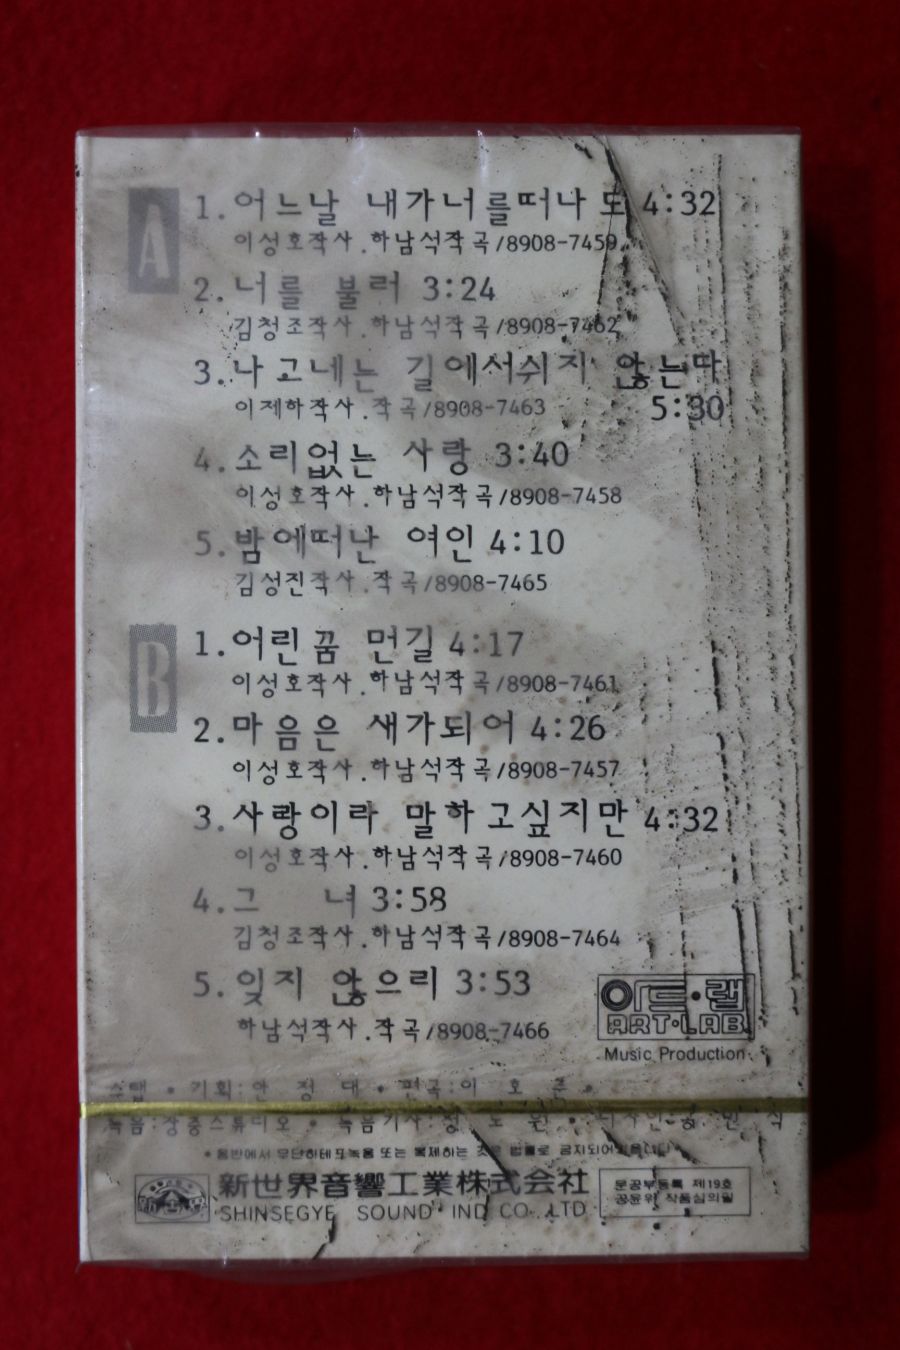 A
1.어느날 내가너를떠나도 4:32
이성호작사.하남석작곡/8908-7459
2.너를 불러 3:24
김청조작사.하남석작곡/8908-7462
3.나고네는 길에서쉬지 않는다
이제하작사.작곡/8908-7463 5:30
4.소리없는 사랑 3:40
이성호작사.하남석작곡/8908-7458
5.밤에떠난 여인 4:10
김성진작사.작곡/8908-7465
B
1.어린꿈 먼길 4:17
이성호작사.하남석작곡/8908-7461
2.마음은 새가되어 4:26
이성호작사.하남석작곡/8908-7457
3.사랑이라 말하고싶지만 4:32
이성호작사.하남석작곡/8908-7460
4.그 녀 3:58
김청조작사.하남석작곡/8908-7464
5.잊지 않으리 3:53
하남석작사.작곡/8908-7466
아트·랩
ART·LAB
Music Production
스탭•기획:안 정 대•편곡:이 호 준•
녹음:장충스튜디오•녹음기사:
•음반에서 무단하테프녹음 또는 복제하는 것은 법률로 금지되어있읍니다
新世界音響工業株式会社
SHINSEGYE SOUND IND CO.,LTD
문공부등록 제19호
공윤위 작품심의필